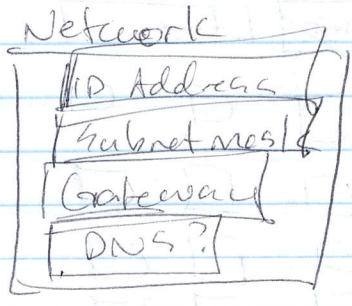 Network
ID Address
Subnet mask
Gateway
DNS?